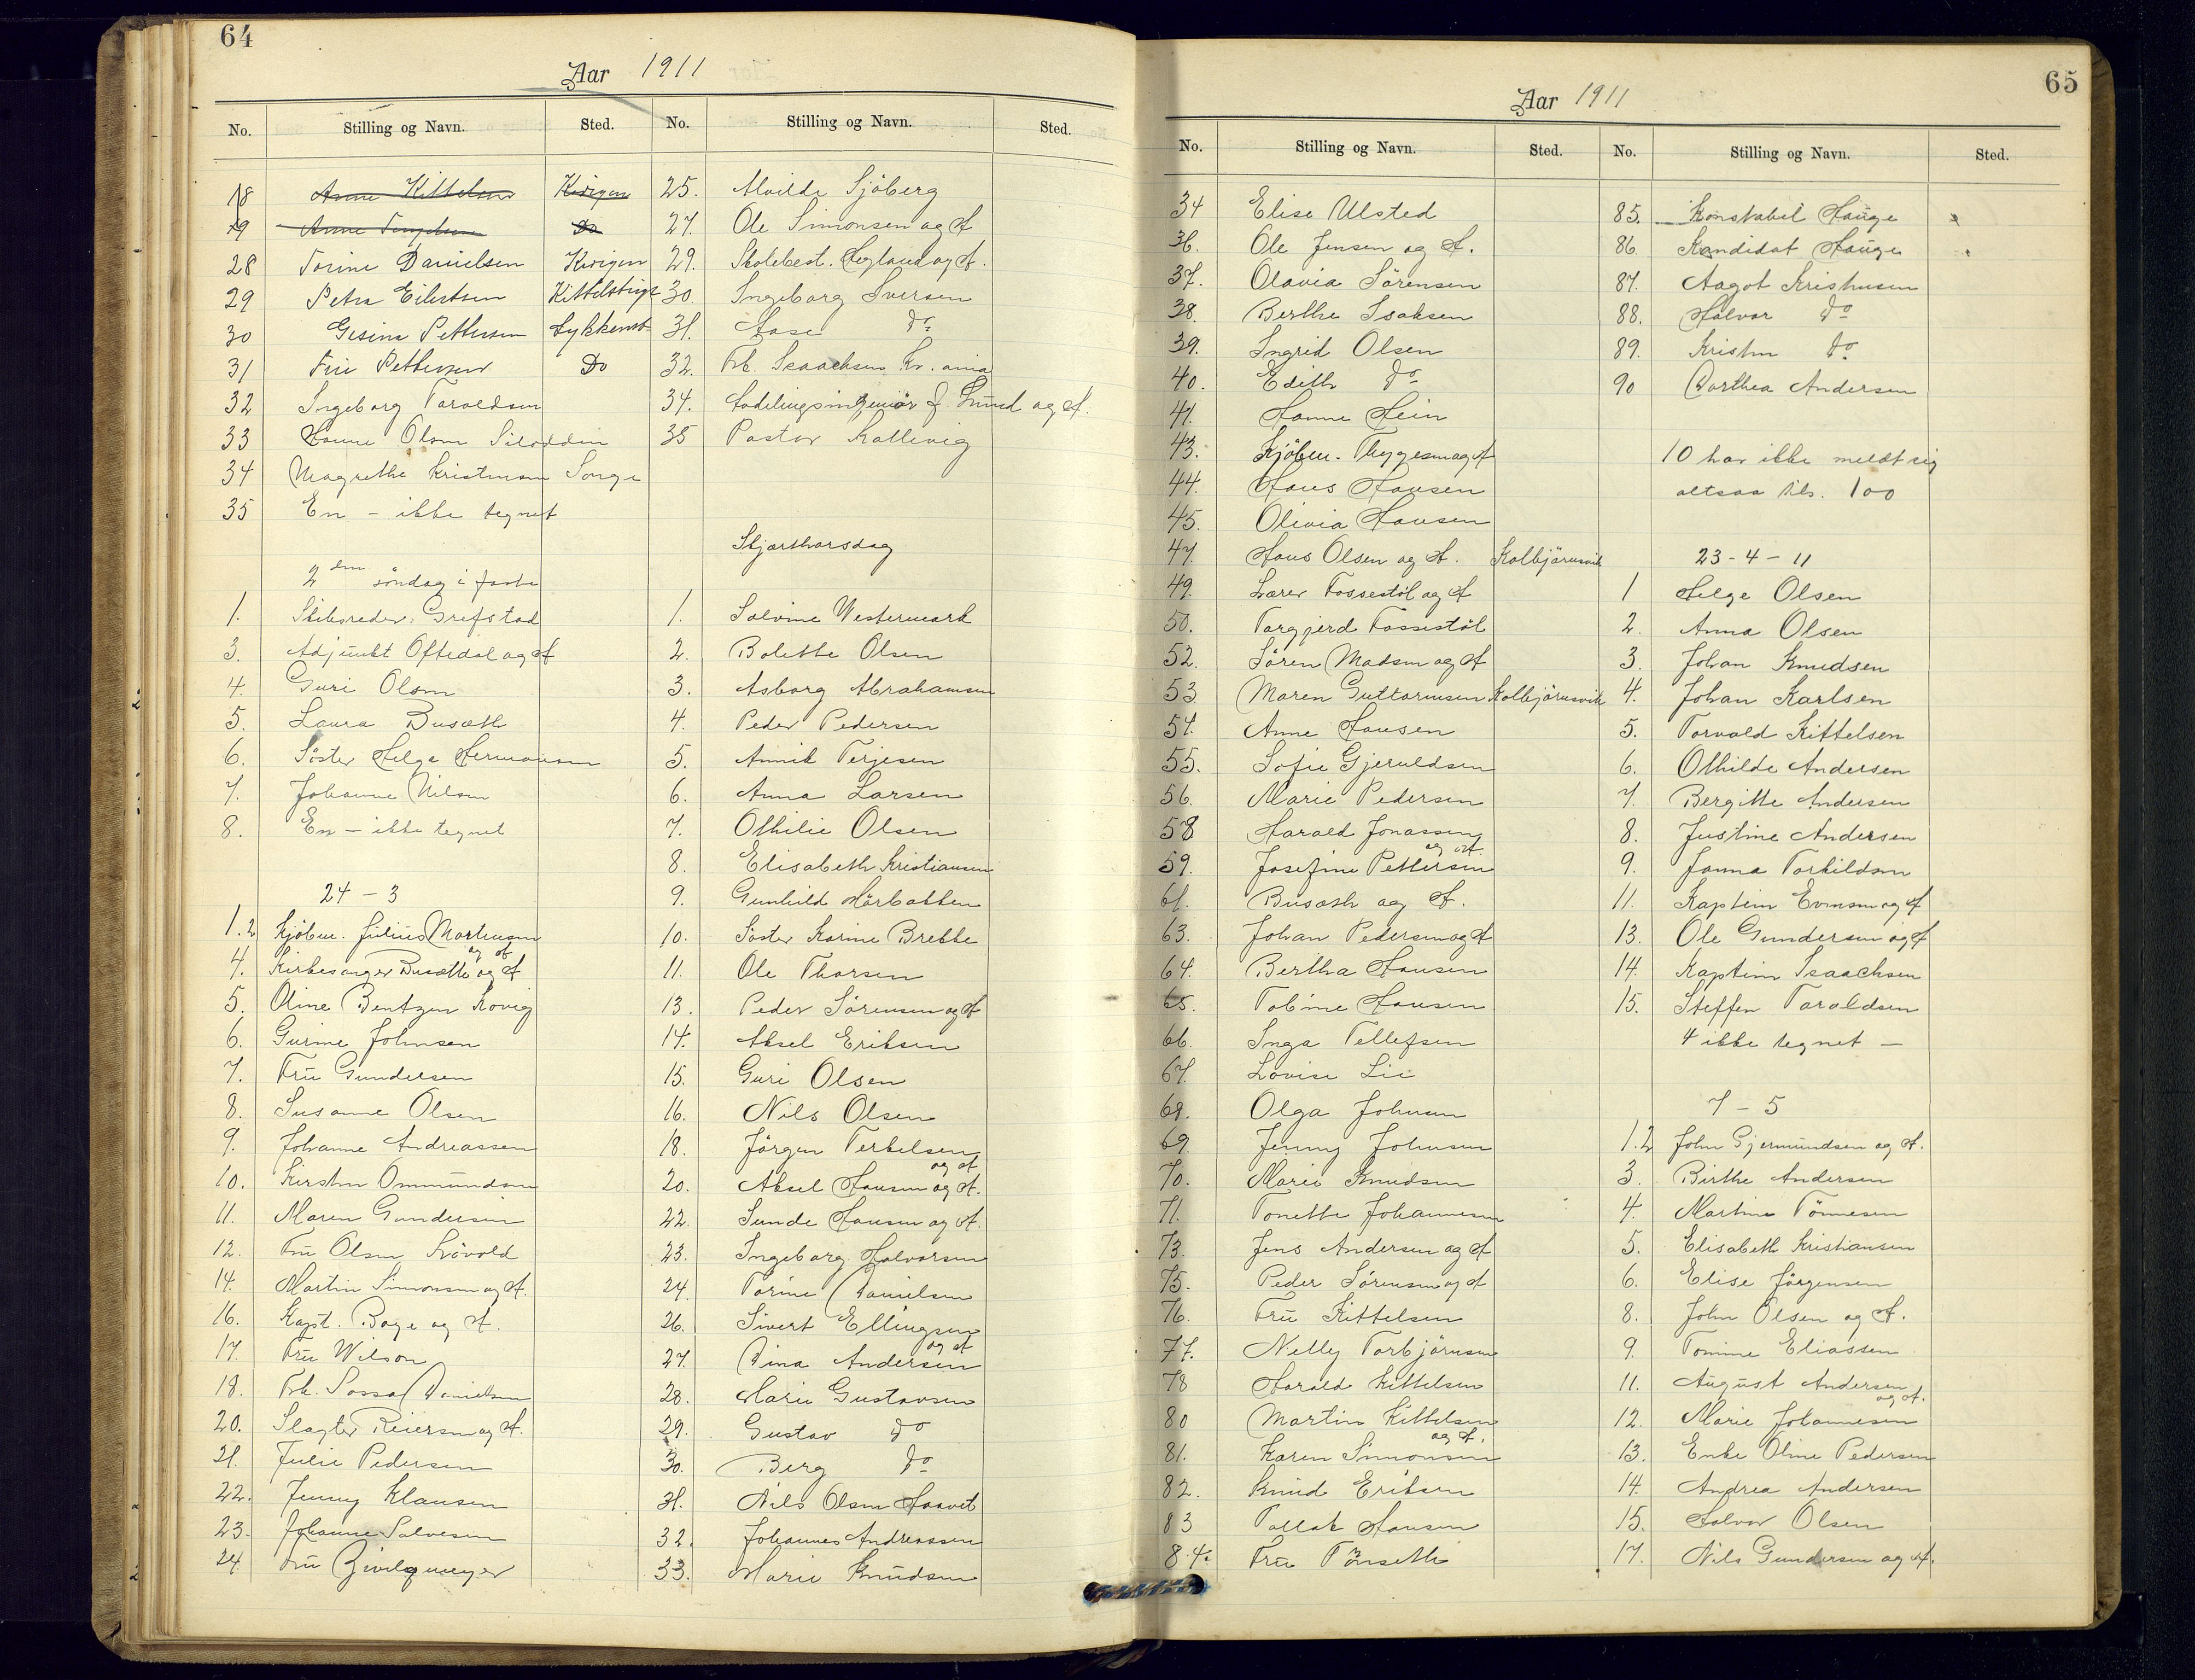 64
Aar 1911
No. Stilling og Navn. Sted. No. Stilling og Navn. Sted.
18 Anne Kittelsen
19 Anne
28 Torine Danielsen
29 Petra Eilertsen
30 Gesine Pettersen
31 Fru Pettersen Do
32 Ingeborg Taroldsen
33 Hanne Olsen
34 Magrethe Kristensen Songe
35 En - ikke tegnet
2den söndag i faste
1. Skibsreder Grefstad
3. Adjunkt Oftedal og H
4. Guri Olsen
5. Laura Busæth
6. Söster Helga Hermansen
7. Johanne Nilsen
8. En - ikke tegnet
24 - 3
1.2 Kjöbm. Julius Mortensen og H
4. Kirkesanger Busæth og H
5. Oline Bentzen Kovig
6. Gurine Johnsen
7. Fru Gundersen
8. Susanne Olsen
9. Johanne Andreassen
10. Kirsten Ommundsen
11. Maren Gundersen
12. Fru Olsen
14. Martin Simonsen og H.
16. Kapt. Boye og H.
17. Fru Wilson
18. Frk. Danielsen
20. Slagter Reiersen og H.
21. Julie Pedersen
22. Jenny Klausen
23. Johanne Salvesen
24. Fru
25. Alvilde Sjöberg
27. Ole Simonsen og H
29. Skolebest. Hegland og H.
30. Ingeborg Iversen
31. Aase do
32. Frk. Isaachsen Kr.ania
34. Afdelingsingeniör J. Lund og H.
35 Pastor Kallevig
Skjærthorsdag
1. Salvine Westermark
2. Bolette Olsen
3. Asborg Abrahamsen
4. Peder Pedersen
5. Annik Terjesen
6. Anna Larsen
7. Othilie Olsen
8. Elisabeth Kristiansen
9. Gunhild Hörbakken
10. Söster Karine Brekke
11. Ole Thorsen
13. Peder Sörensen og H
14. Aksel Eriksen
15. Guri Olsen
16. Nils Olsen
18. Jörgen Terkelsen og H
20. Aksel Hansen og H.
22. Sunde Hansen og H.
23. Ingeborg Halvorsen
24. Torine Danielsen
26. Sivert Ellingsen og H
27. Dina Andersen
28. Marie Gustavsen
29. Gustav do
30. Berg do
31. Nils Olsen Haavet
32. Johannes Andreassen
33. Marie Knudsen
65
Aar 1911
No. Stilling og Navn. Sted. No. Stilling og Navn. Sted.
34 Elise Ulsted
36. Ole Jensen og H.
37. Olavia Sörensen
38. Berthe Isaksen
39. Ingrid Olsen
40. Edith do
41. Hanne Hein
43. Kjöbm. Thygesen og H
44. Hans Hansen
45. Olivia Hansen
47. Hans Olsen og H. Kolbjörnsvik
49. Lærer Fossestöl og H
50. Torgjerd Fossestöl
52. Sören Madsen og H
53 Maren Guttormsen Kolbjörnsvik
54. Anne Hansen
55. Sofie Gjeruldsen
56. Marie Pedersen
58 Harald Jonassen og H.
59. Josefine Pettersen
61. Busæth og H.
63. Johan Pedersen og H
64. Bertha Hansen
65. Tobine Hansen
66. Inga Tellefsen
67. Lovise Lie
68. Olga Johnsen
69. Jenny Johnsen
70. Marie Knudsen
71. Tonette Johannesen
73. Jens Andersen og H
75. Peder Sörensen og H
76. Fru Kittelsen
77. Nelly Torbjörnsen
78 Harald Kittelsen
80 Martin Kittelsen og H.
81. Karen Simonsen
82. Knud Eriksen
83 Tallak Hansen
84. Fru Tönseth
85. Konstabel Hauge
86. Kandidat Hauge
87. Aagot Kristensen
88. Halvor do
89. Kristen do
90 Dorthea Andersen
10 har ikke meldt sig
altsaa tils. 100
23 - 4 - 11
1 Helge Olsen
2. Anna Olsen
3. Johan Knudsen
4. Johan Karlsen
5. Torvald Kittelsen
6. Othilde Andersen
7. Bergitte Andersen
8. Justine Andersen
9. Janna Torkildsen
11. Kaptein Evensen og H
13. Ole Gundersen og H
14. Kaptein Isaachsen
15. Steffen Taraldsen
4 ikke tegnet -
7 - 5
1.2 John Gjermundsen og H.
3. Birthe Andersen
4. Martine Tönnesen
5. Elisabeth Kristiansen
6. Elise Jörgensen
8. John Olsen og H.
9. Tomine Eliassen
11. August Andersen og H.
12. Marie Johannesen
13. Enke Oline Pedersen
14. Andrea Andersen
15. Halvor Olsen
17. Nils Gundersen og H.